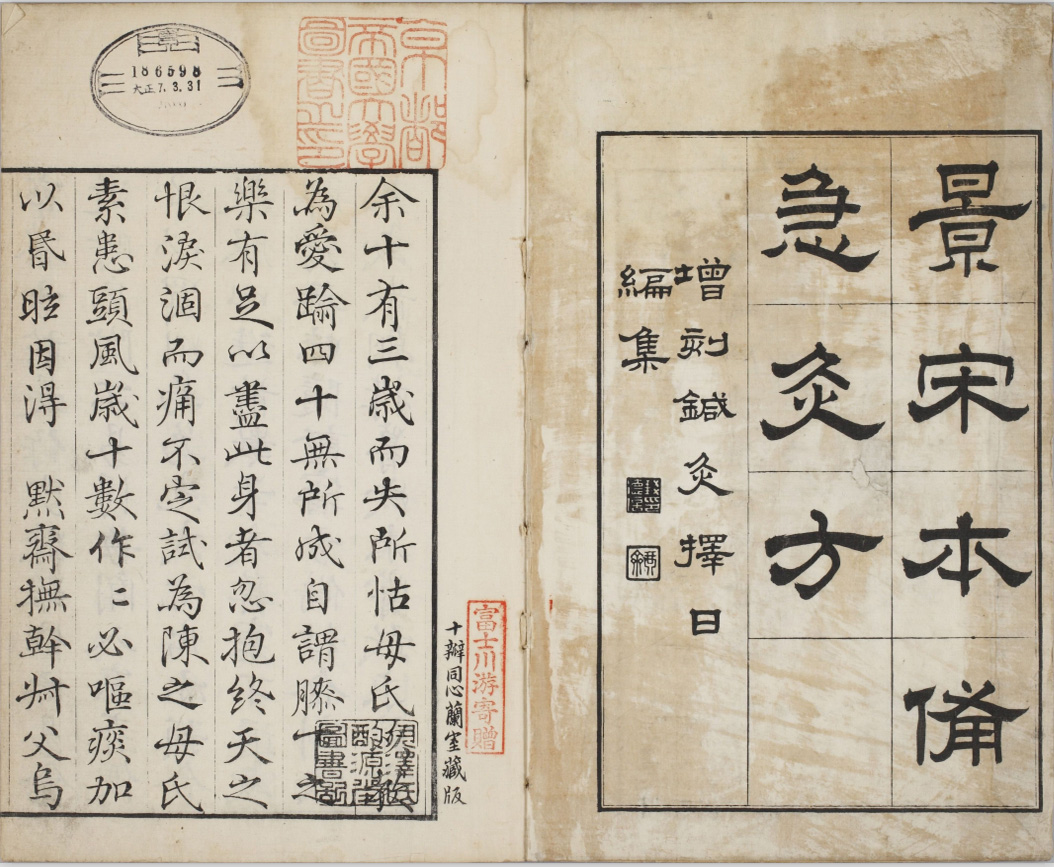 景宋本備
急灸方
增刻鍼灸擇日
編集
富士川游寄贈
十瓣同心蘭室藏版
京都
帝國大學
圖書之印
186598
大正7.3.31
余十有三歲而失所怙母氏
為愛踰四十無所成自謂膝下之
樂有足以盡此身者忽抱終天之
恨淚涸而痛不定試為陳之母氏
素患頭風歲十數作〻必嘔痰加
以昬眩因淂 默齋撫幹艸父烏
伊澤氏
酌源堂
圖書記